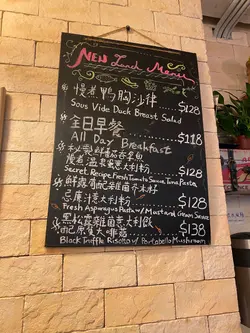 NEW Lunch Menu
慢煮鴨胸沙律 $128
Sous Vide Duck Breast Salad
全日早餐 $118
All Day Breakfast
$128
Secret Recipe Fresh Tomato Sauce Tuna Pasta
鮮露筍配雜菌芥末籽
忌廉汁意大利粉 $128
Fresh Asparagus Pasta w/ Mustard Cream Sauce
黑松露雜菌意大利飯
配原隻大啡菇 $138
Black Truffle Risotto w/ Portobello Mushroom